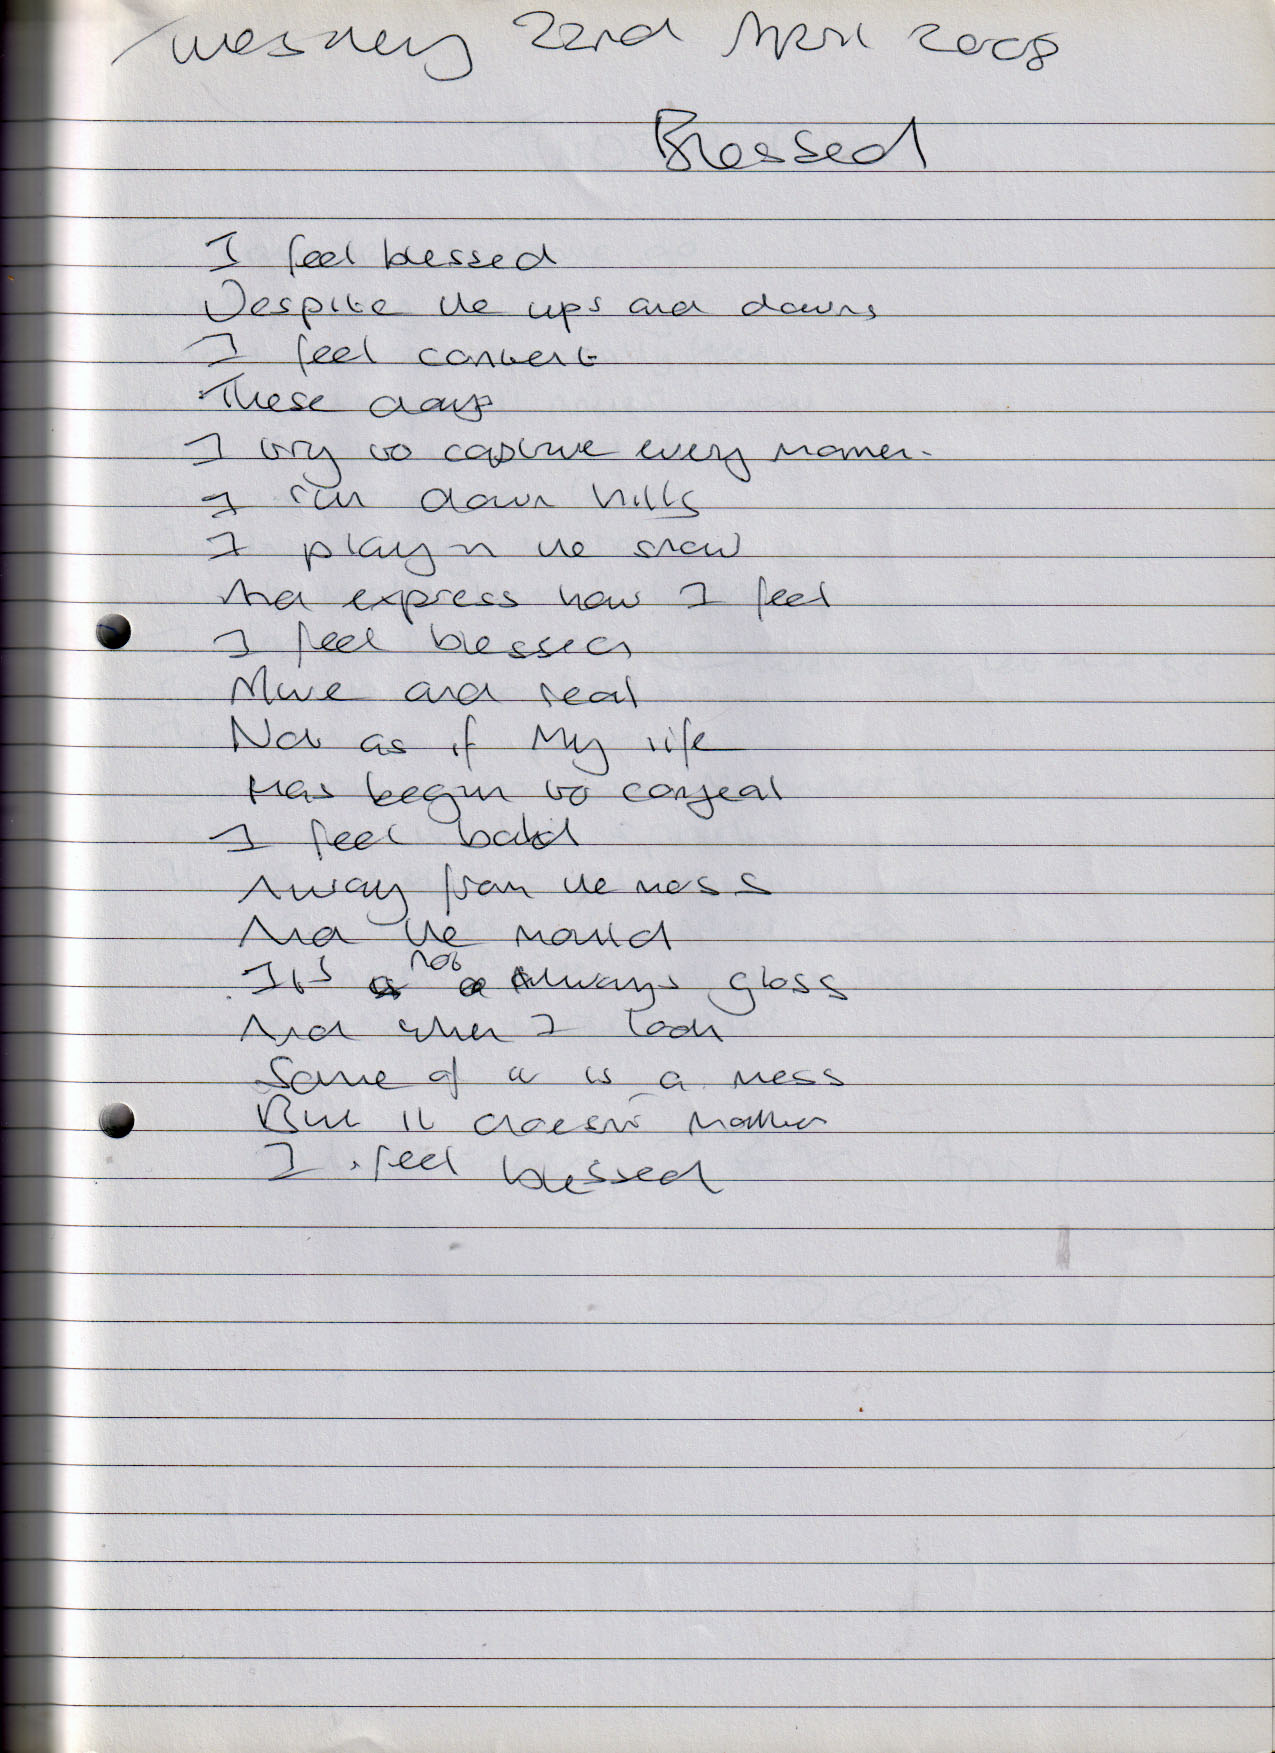 Tuesday 22nd April 2008
Blessed
I feel blessed
Despite the ups and downs
I feel content
These days
I try to capture every moment
I run down hills
I play in the snow
And express how I feel
I feel blessed
Alive and real
Not as if my life
Has begun to congeal
I feel bold
Away from the mess
And the mould
It's not always gloss
And when I look
Some of it is a mess
But it doesn't matter
I feel blessed